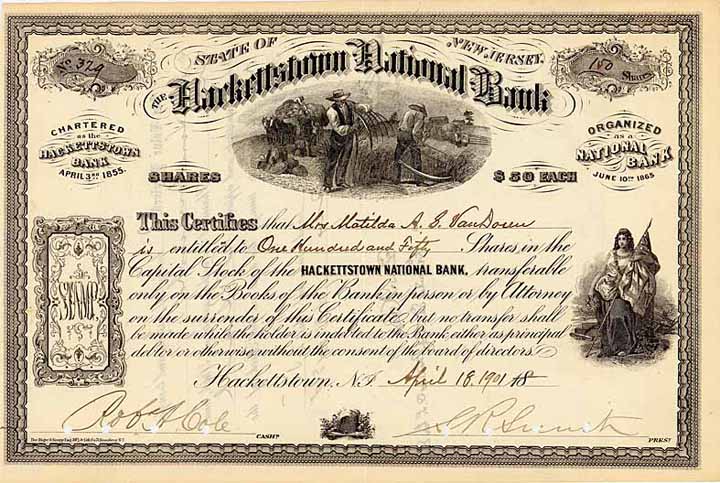 STATE OF NEW JERSEY.
No 329
150 Shares
THE Hackettstown National Bank
CHARTERED
as the
HACKETTSTOWN
BANK
APRIL 3RD 1855.
ORGANIZED
as a
NATIONAL BANK
JUNE 10TH 1865
SHARES $50 EACH
This Certifies that Mrs Matilda A. E. VanDoren
is entitled to One Hundred and Fifty Shares in the
Capital Stock of the HACKETTSTOWN NATIONAL BANK, transferable
only on the Books of the Bank in person or by Attorney
on the surrender of this Certificate, but no transfer shall
be made while the holder is indebted to the Bank either as principal
debtor or otherwise, without the consent of the board of directors.
STAMP
Hackettstown, N.J. April 18, 1901 18
Robt A Cole
CASHR
PREST